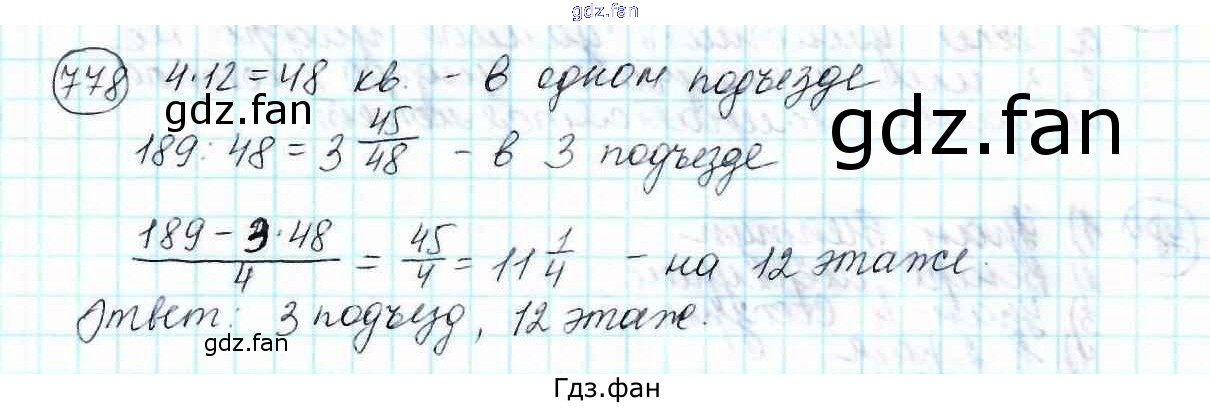 gdz.fan
778 4·12=48 кв. - в одном подъезде
gdz.fan
gdz.fan
189:48=3 45/48 - в 3 подъезде
(189-3·48)/4 = 45/4 = 11 1/4 - на 12 этаже.
Ответ: 3 подъезд, 12 этаж.
gdz.fan
gdz.fan
Гдз.фан